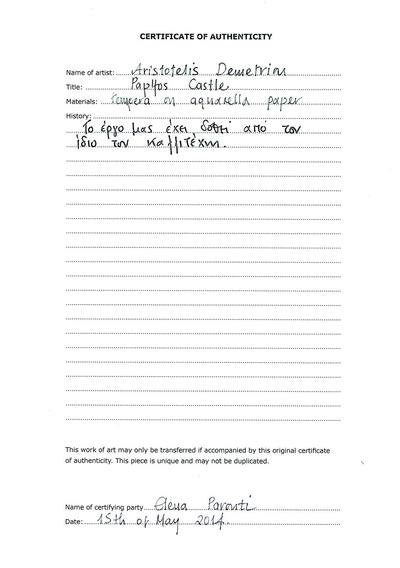 CERTIFICATE OF AUTHENTICITY
Name of artist: Aristotelis Demetriou
Title: Paphos Castle
Materials: tempera on aquarella paper
History:
Το έργο μας έχει δοθεί από τον
ίδιο τον καλλιτέχνη.
This work of art may only be transferred if accompanied by this original certificate
of authenticity. This piece is unique and may not be duplicated.
Name of certifying party Elena Parouti
Date: 15th of May 2014.